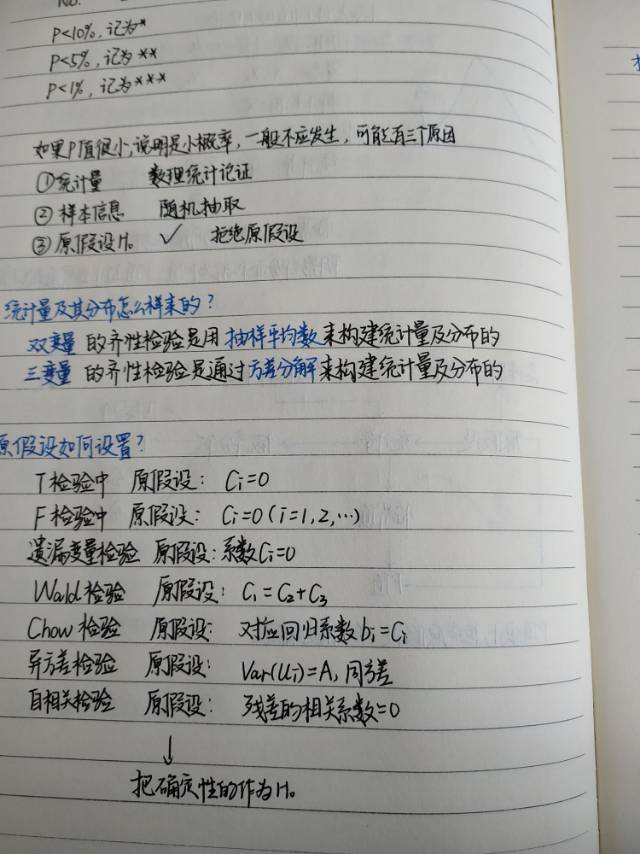 No.
P<10%, 记为*
P<5%, 记为**
P<1%, 记为***
如果P值很小,说明是小概率,一般不应发生,可能有三个原因
①统计量 数理统计论证
②样本信息 随机抽取
③原假设H₀ ✓ 拒绝原假设
统计量及其分布怎么样来的?
双变量的齐性检验是用抽样平均数来构建统计量及分布的
三变量的齐性检验是通过方差分解来构建统计量及分布的
原假设如何设置?
T检验中 原假设: Ci=0
F检验中 原假设: Ci=0(i=1,2,…)
遗漏变量检验 原假设:系数Ci=0
Wald检验 原假设: C₁=C₂+C₃
Chow检验 原假设: 对应回归系数bi=Ci
异方差检验 原假设: Var(Ui)=A,同方差
自相关检验 原假设: 残差的相关系数=0
↓
把确定性的作为H₀